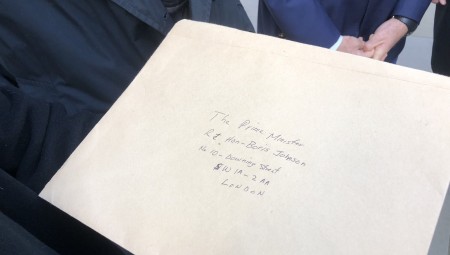 The Prime Minister
Rt. Hon-Boris Johnson
No 10-Downing Street
SW 1A-2AA
LONDON